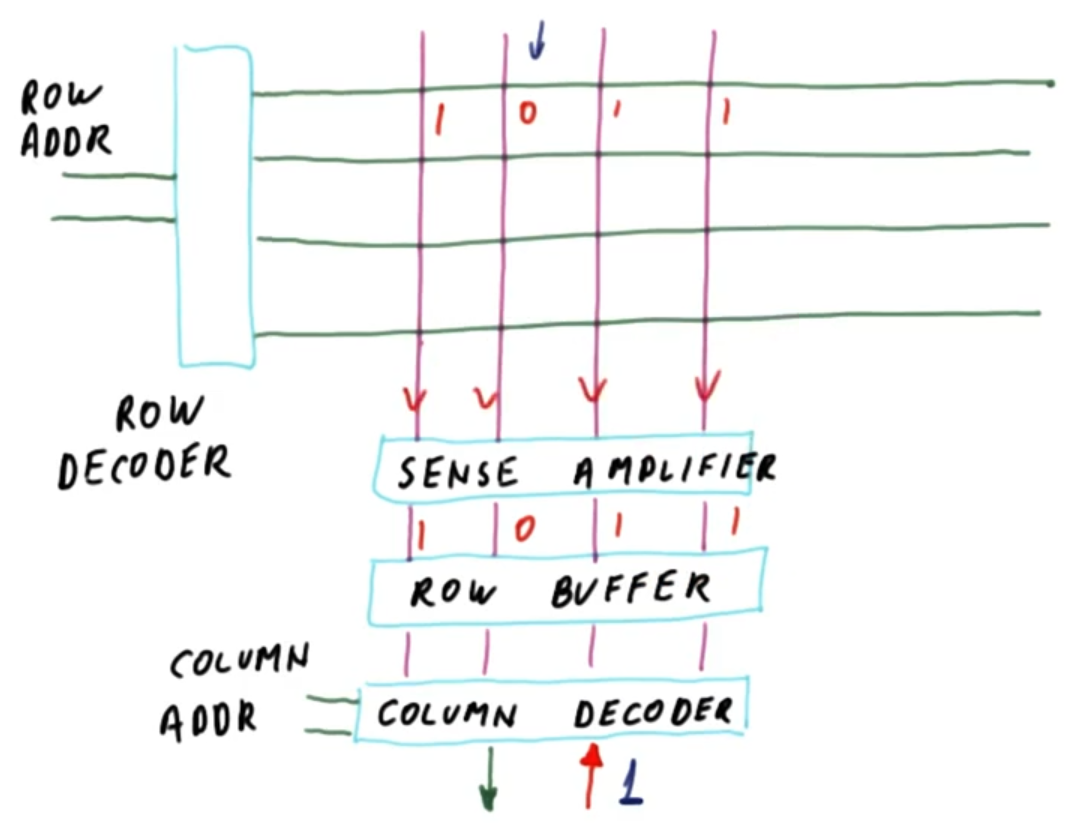 ROW
ADDR
1 0 1 1
ROW
DECODER
SENSE AMPLIFIER
1 0 1 1
ROW BUFFER
COLUMN
ADDR
COLUMN DECODER
1